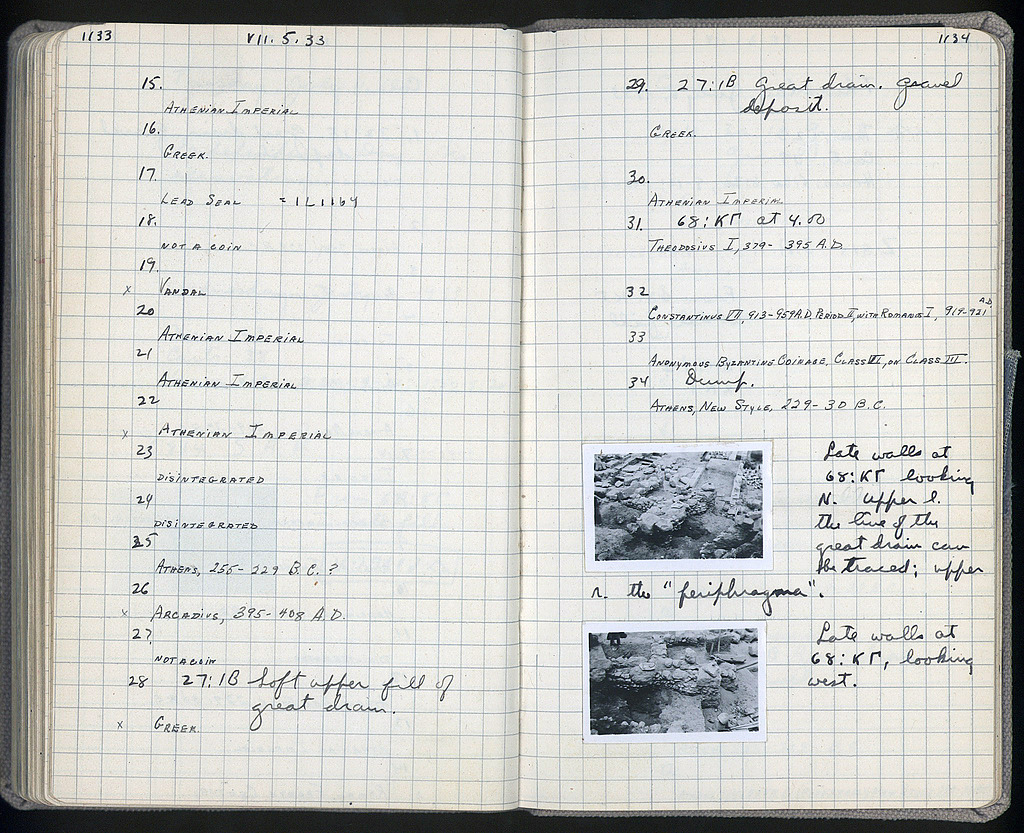 1133
VII. 5. 33
15.
ATHENIAN IMPERIAL
16.
GREEK.
17.
LEAD SEAL = IL1164
18.
NOT A COIN
19.
x VANDAL
20
ATHENIAN IMPERIAL
21
ATHENIAN IMPERIAL
22
x ATHENIAN IMPERIAL
23
DISINTEGRATED
24
DISINTEGRATED
25
ATHENS, 255-229 B.C. ?
26
x ARCADIUS, 395-408 A.D.
27
NOT A COIN
28 27:IB Soft upper fill of
great drain.
x GREEK.
1134
29. 27:IB Great drain. Gravel
deposit.
GREEK.
30.
ATHENIAN IMPERIAL
31. 68:ΚΓ at 4.00
THEODOSIUS I, 379-395 A.D.
32
CONSTANTINUS VII, 913-959 A.D. PERIOD II, WITH ROMANUS I, 919-921 A.D.
33
ANONYMOUS BYZANTINE COINAGE, CLASS VI, ON CLASS III.
34 Dump.
ATHENS, NEW STYLE, 229-30 B.C.
Late walls at
68:ΚΓ looking
N. Upper l.
the line of the
great drain can
be traced; upper
r. the "periphragma".
Late walls at
68:ΚΓ, looking
west.